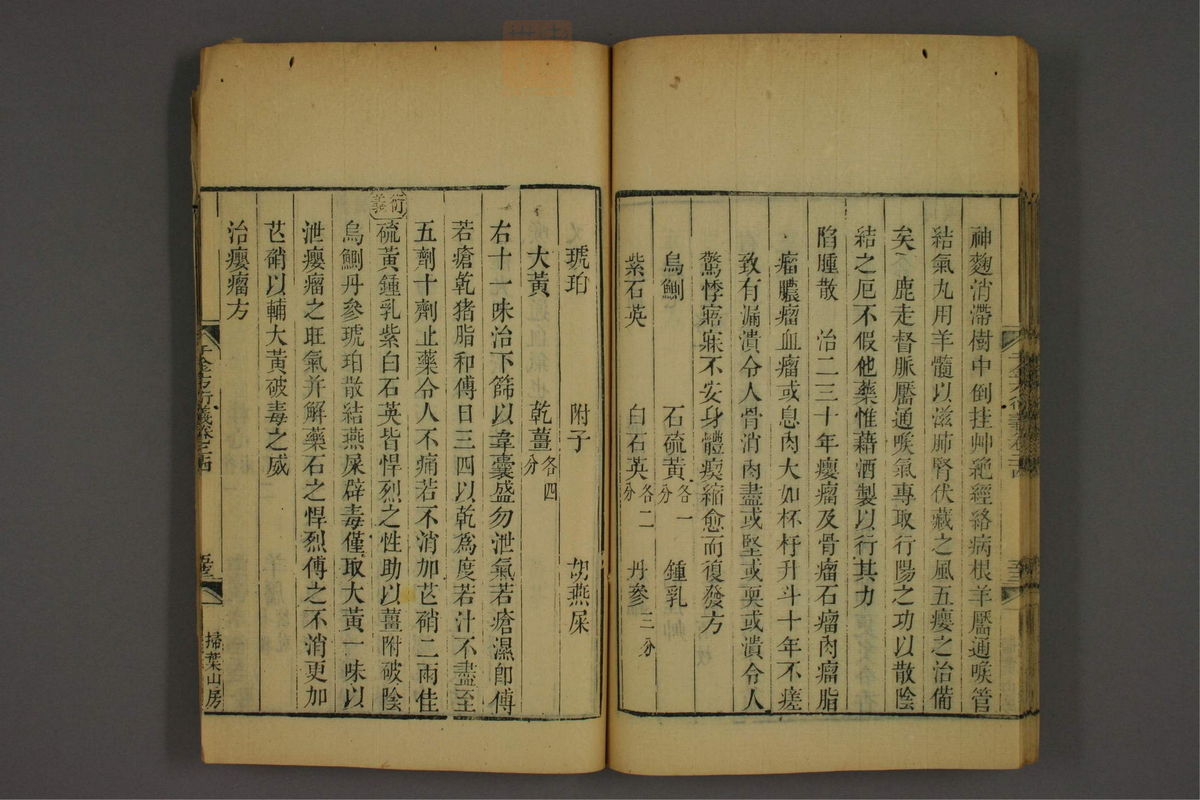 神麴消滯樹中倒挂艸絶經絡病根羊靨通喉管
結氣丸用羊髓以滋肺腎伏藏之風五癭之治備
矣鹿走督脈靨通喉氣專取行陽之功以散陰
結之厄不假他藥惟藉酒製以行其力
陷腫散 治二三十年癭瘤及骨瘤石瘤肉瘤脂
瘤膿瘤血瘤或息肉大如杯杅升斗十年不瘥
致有漏潰令人骨消肉盡或堅或耎或潰令人
驚悸寤寐不安身體瘈縮愈而復發方
烏鰂 石硫黃各一分 鍾乳
紫石英 白石英各二分 丹參三分
琥珀 附子 胡燕屎
大黃 乾薑各四分
右十一味治下篩以韋囊盛勿泄氣若瘡濕卽傅
若瘡乾猪脂和傅日三四以乾爲度若汁不盡至
五劑十劑止藥令人不痛若不消加芒硝二兩佳
衍義 硫黃鍾乳紫白石英皆悍烈之性助以薑附破陰
烏鰂丹參琥珀散結燕屎辟毒僅取大黃一味以
泄癭瘤之旺氣并解藥石之悍烈傅之不消更加
芒硝以輔大黃破毒之威
治癭瘤方
千金方衍義卷二十四
掃葉山房